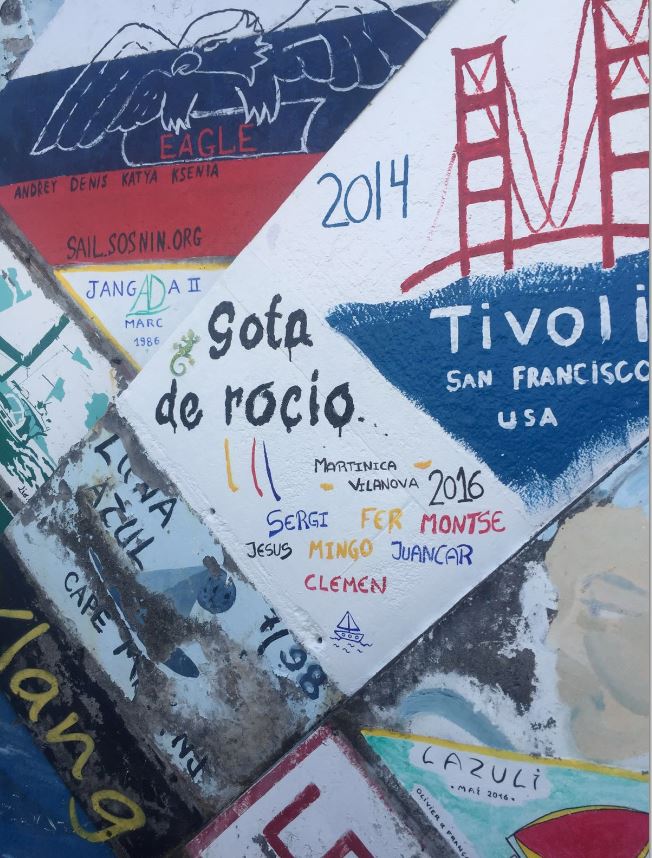 EAGLE
ANDREY DENIS KATYA KSENIA
SAIL.SOSNIN.ORG
2014
Tivoli
SAN FRANCISCO
USA
JANGADA II
MARC
1986
Gota
de rocio.
MARTINICA
VILANOVA
2016
SERGI FER MONTSE
JESUS MINGO JUANCAR
CLEMEN
LUNA
AZUL
CAPE
7/98
lang
LAZULi
·MAI 2016·
OLIVIER &